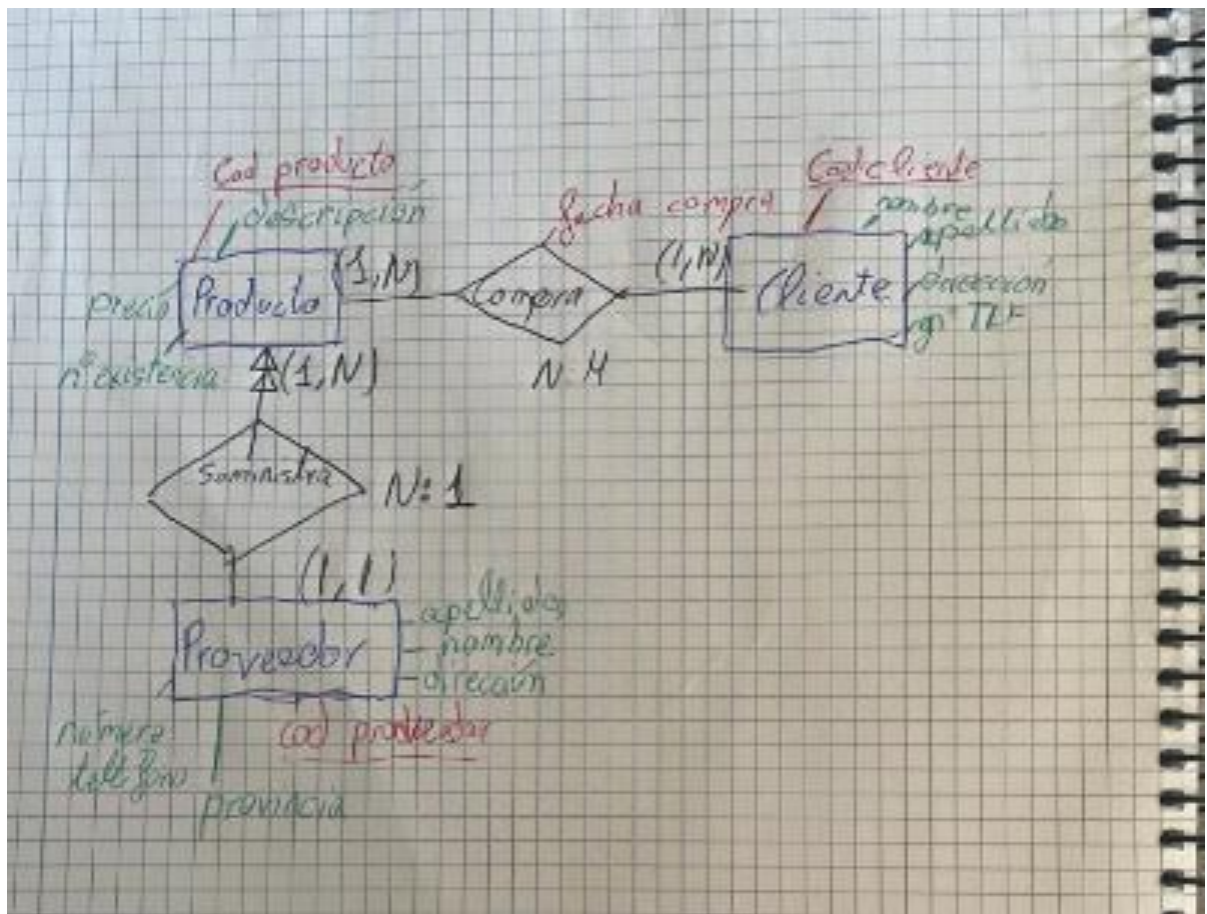 Cod producto
descripción
Producto
precio
nº existencia
(1,N)
Compra
fecha compra
N:M
(1,N)
Cod cliente
nombre
apellidos
Cliente
dirección
nº TLF
(1,N)
Suministra
N:1
(1,1)
Proveedor
apellidos
nombre
dirección
cod proveedor
número
teléfono
provincia